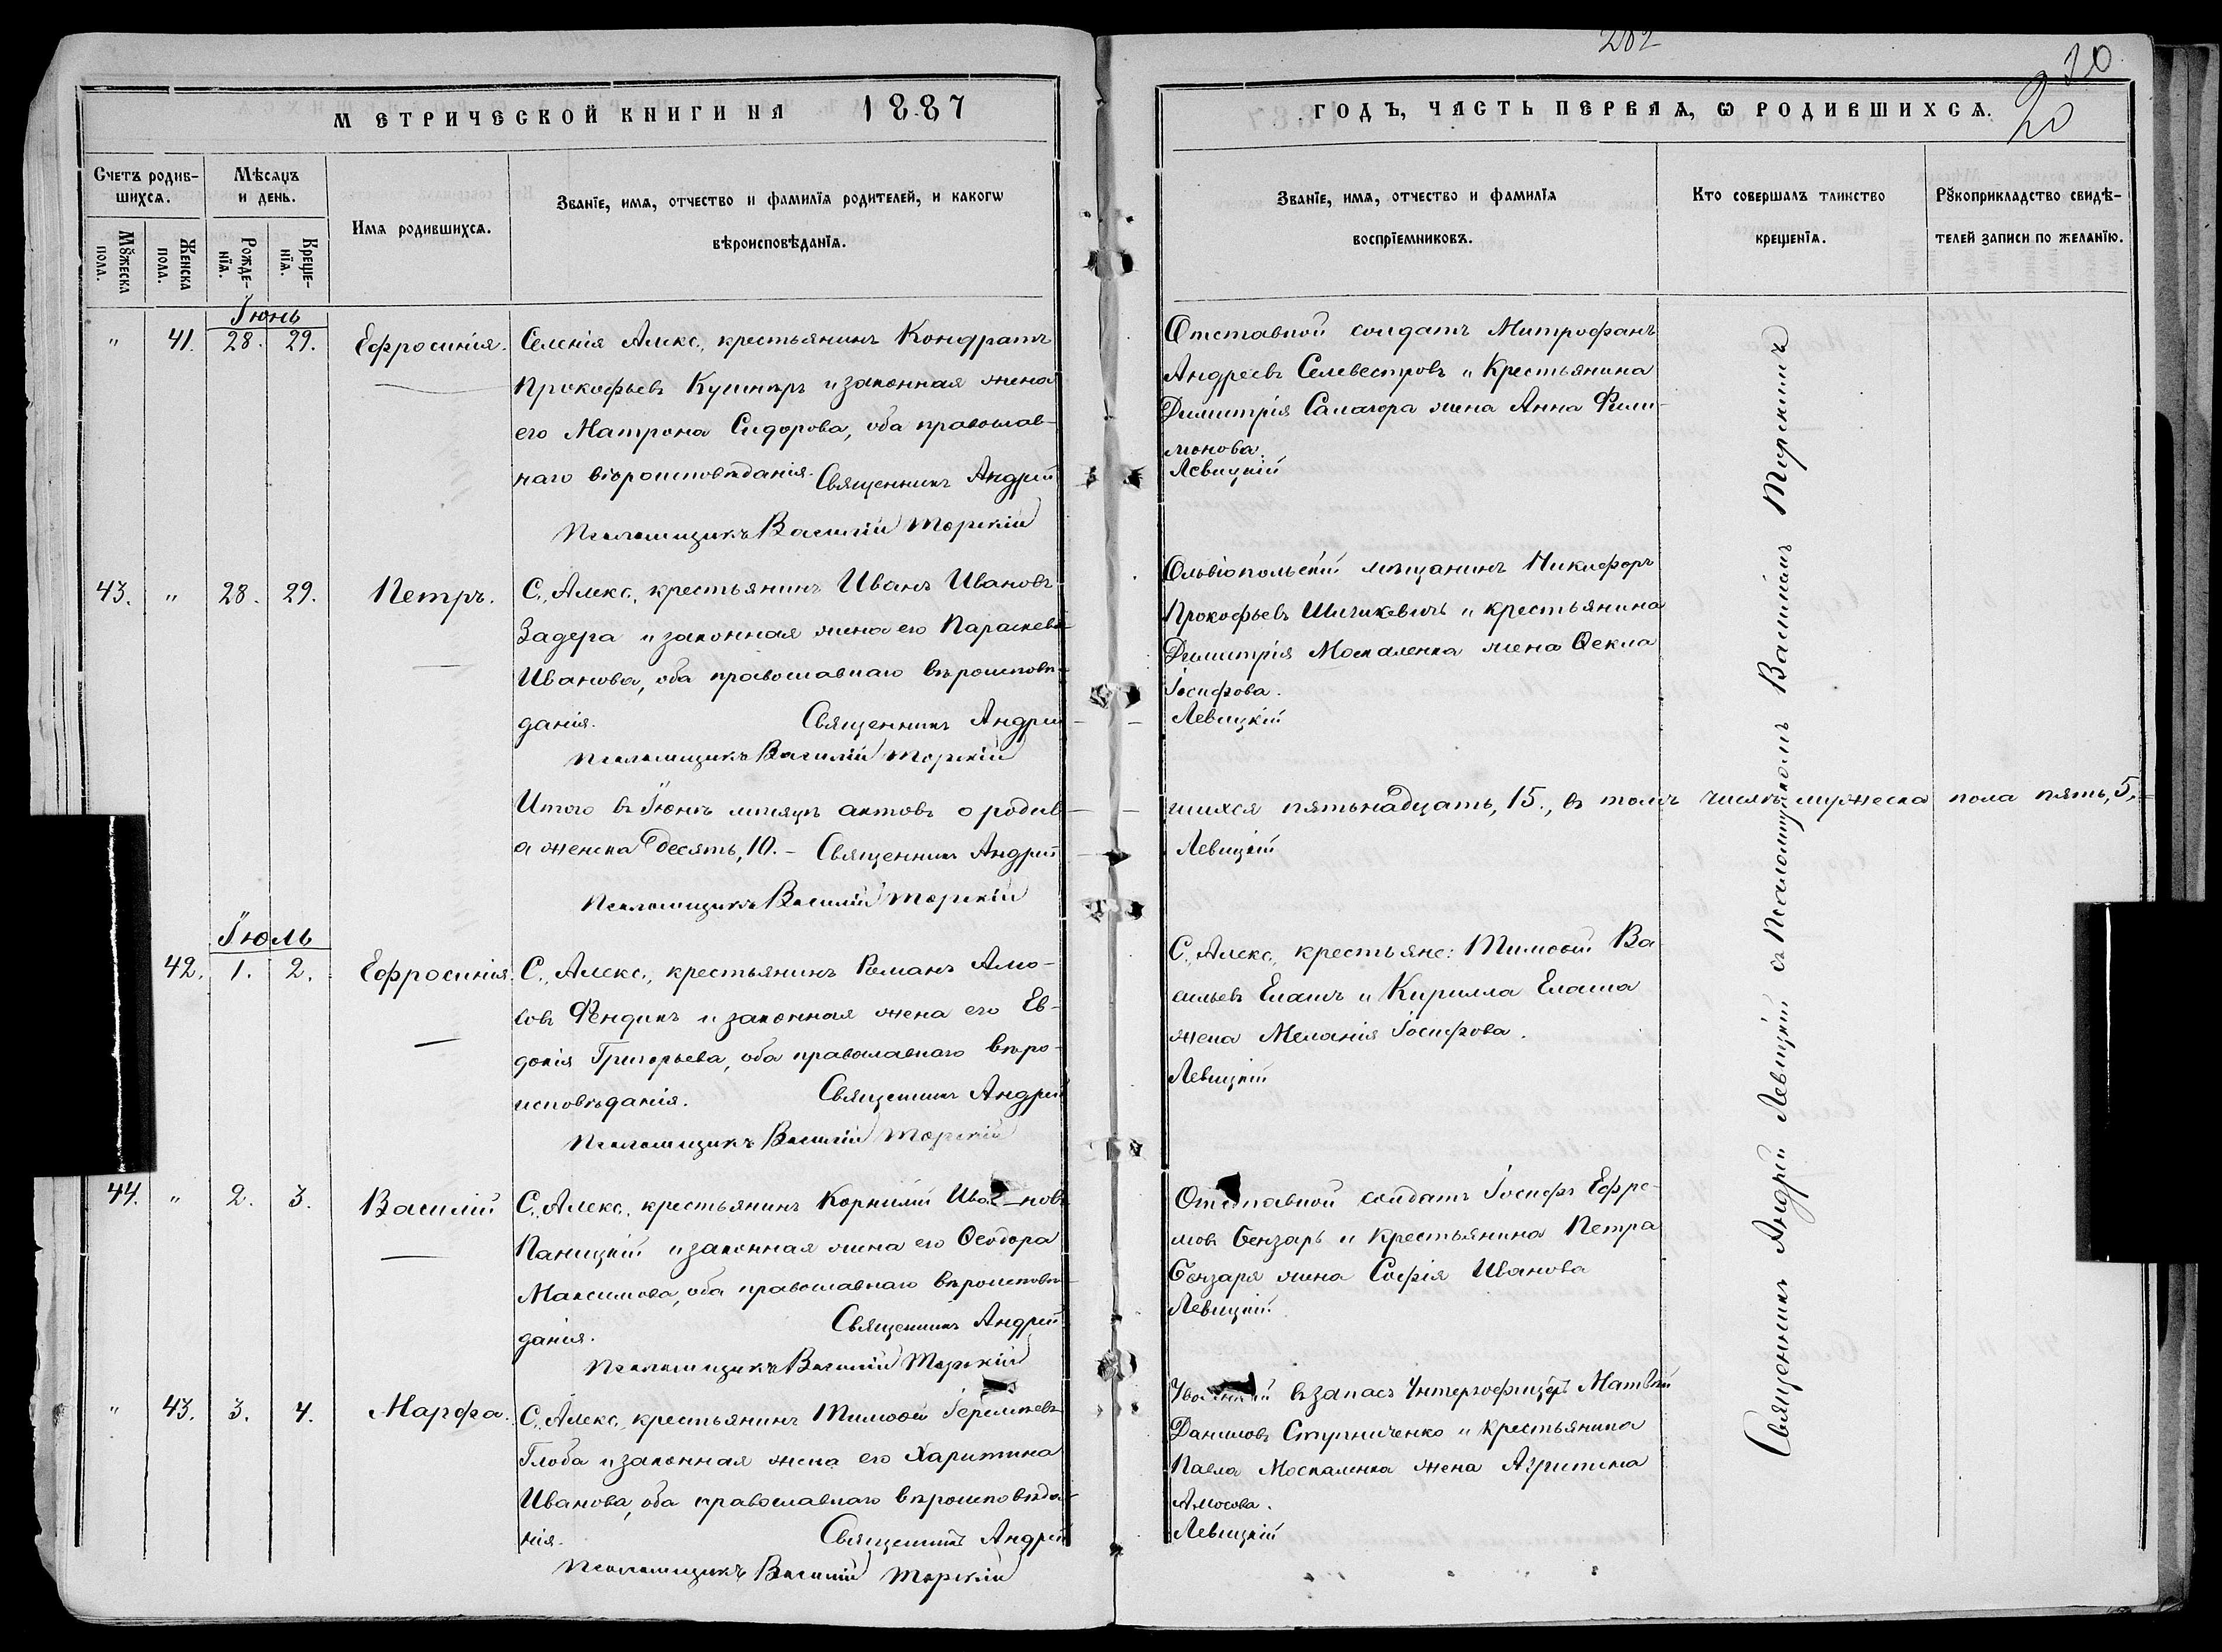 282
20
20
МЕТРИЧЕСКОЙ КНИГИ НА 1887
ГОДЪ, ЧАСТЬ ПЕРВАЯ, Ѡ РОДИВШИХСѦ.
Счетъ родив-
шихсѧ.
Мѣсѧцъ
и день.
Имѧ родившихсѧ.
Званїе, имѧ, отчество и фамилїѧ родителей, и какогѡ
вѣроисповѣданїѧ.
Мꙋжеска
пола.
Женска
пола.
Рожде-
нїѧ.
Креще-
нїѧ.
Званїе, имѧ, отчество и фамилїѧ
воспрїемниковъ.
Кто совершалъ таинство
крещенїѧ.
Рꙋкоприкладство свидѣ-
телей записи по желанїю.
Іюнь
" 41. 28. 29. Ефросинія. Селенія Алекс., крестьянинъ Кондратъ
Прокофьевъ Кушниръ и законная жена
его Матрона Сидорова, оба православ-
наго вѣроисповѣданія. Священникъ Андрей
Псаломщикъ Василій Торскій
Отставной солдатъ Митрофанъ
Андреевъ Селевестровъ и Крестьянина
Димитрія Самагора жена Анна Фили-
монова.
Левицкій
43. " 28. 29. Петръ. С. Алекс. крестьянинъ Иванъ Ивановъ
Задера и законная жена его Параскева
Иванова, оба православнаго вѣроисповѣ-
данія. Священникъ Андрей
Псаломщикъ Василій Торскій
Ольвіопольскій мѣщанинъ Никифоръ
Прокофьевъ и крестьянина
Димитрія Москаленка жена Ѳекла
Іосифова.
Левицкій
Итого въ Іюнѣ мѣсяцѣ актовъ о родив-
шихся пятьнадцать, 15., въ томъ числѣ мужеска пола пять, 5,
а женска десять, 10. - Священникъ Андрей
Левицкій
Псаломщикъ Василій Торскій
Іюль
42. 1. 2. Ефросинія. С. Алекс., крестьянинъ Романъ Амо-
совъ Фендикъ и законная жена его Ев-
докія Григорьева, оба православнаго вѣро-
исповѣданія. Священникъ Андрей
Псаломщикъ Василій Торскій
С. Алекс. крестьяне: Тимоѳей Ва
сильевъ Елашъ и Кирилла Елаша
жена Меланія Іосифова.
Левицкій
44. " 2. 3. Василій С. Алекс. крестьянинъ Корнилій Ива-новъ
Паницкій и законная жена его Ѳеодора
Максимова, оба православнаго вѣроисповѣ-
данія. Священникъ Андрей
Псаломщикъ Василій Торскій
Отставной солдатъ Іосифъ Ефре-
мовъ Бензарь и Крестьянина Петра
Бензаря жена Софія Иванова
Левицкій
" 43. 3. 4. Марфа. С. Алекс. крестьянинъ Тимоѳей Іереміевъ
Глоба и законная жена его Харитина
Иванова, оба православнаго вѣроисповѣда-
нія. Священникъ Андрей
Псаломщикъ Василій Торскій
въ запасъ Унтерофицеръ Матвѣй
Даниловъ Ступниченко и Крестьянина
Павла Москаленка жена Агрипина
Амосова.
Левицкій
Священникъ Андрей Левицкій съ Псаломщикомъ Василіемъ Торскимъ